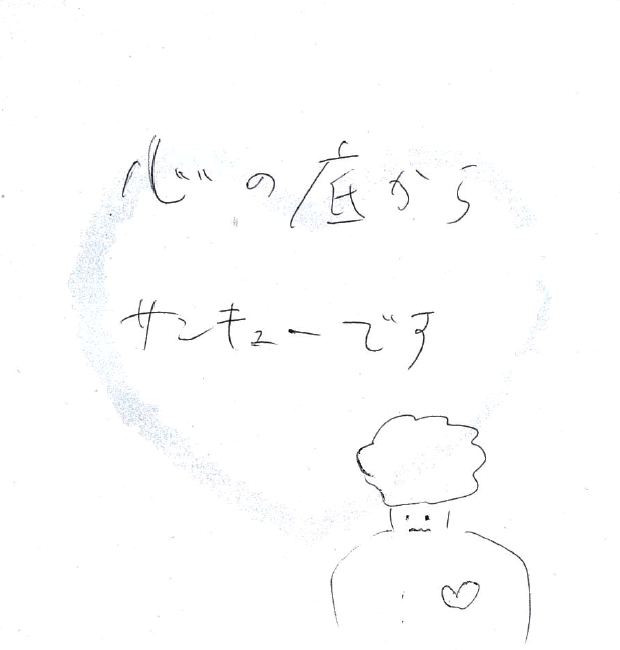 心の底から
サンキューです